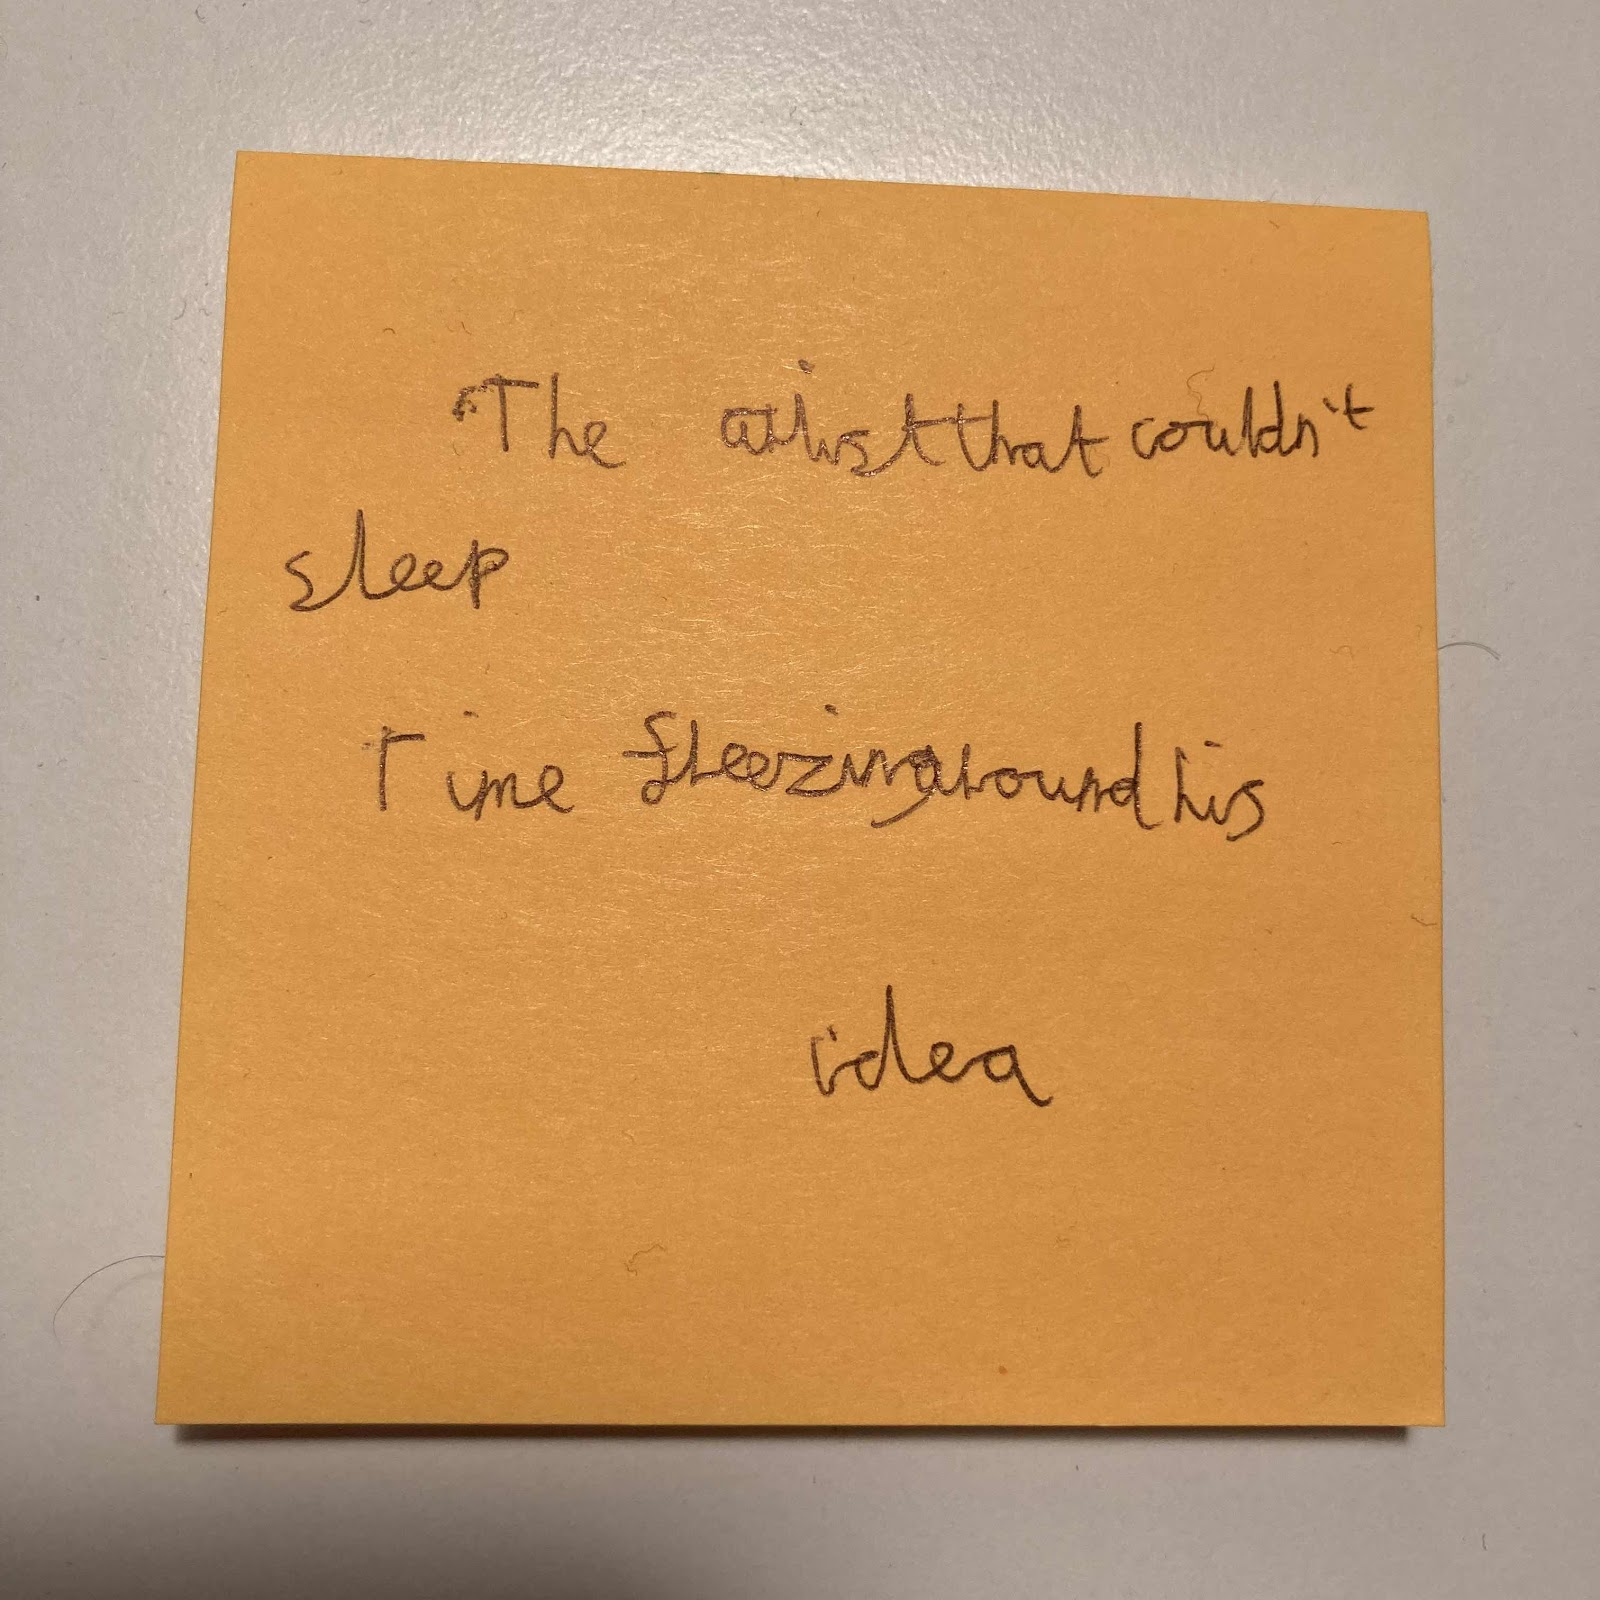 The artist that couldn't
sleep
Time freezing around his
idea